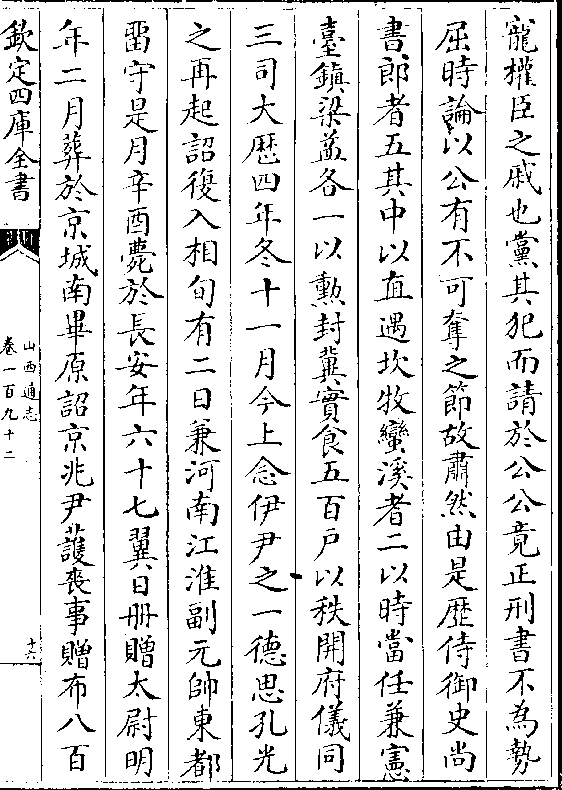 寵權臣之戚也黨其犯而請於公公竟正刑書不為勢
屈時論以公有不可奪之節故肅然由是歴侍御史尚
書郎者五其中以直遇坎牧蠻溪者二以時當任兼憲
臺鎮梁益各一以勲封冀實食五百戸以秩開府儀同
三司大厯四年冬十一月今上念伊尹之一德思孔光
之再起詔復入相旬有二日兼河南江淮副元帥東都
畱守是月辛酉薨於長安年六十七翼日冊贈太尉明
年二月葬於京城南畢原詔京兆尹護喪事贈布八百
欽定四庫全書
山西通志
卷一百九十二
十六